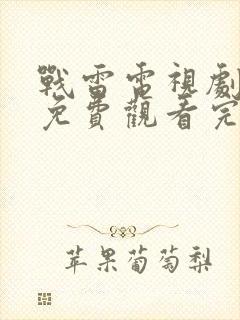 戰雷電視劇
免費觀看完
苹果葡萄梨